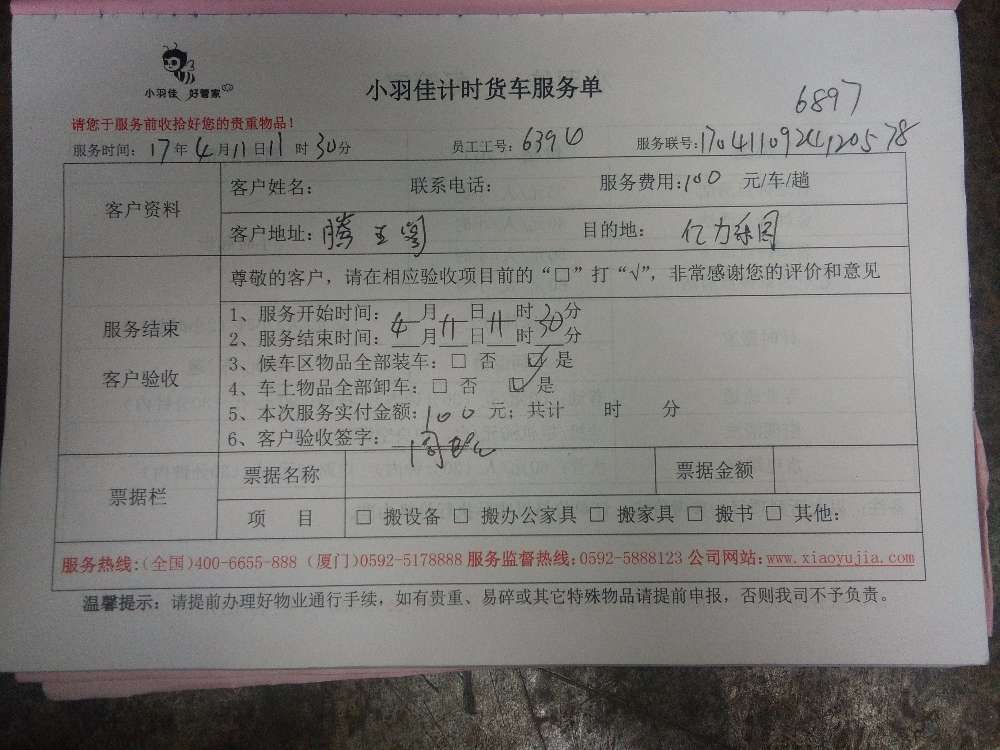 小羽佳 好管家
小羽佳计时货车服务单
6897
请您于服务前收拾好您的贵重物品！
服务时间：17年4月11日11时30分 员工工号：6390 服务联号：
客户资料
客户姓名： 联系电话： 服务费用：100 元/车/趟
客户地址： 目的地：
尊敬的客户，请在相应验收项目前的“□”打“√”，非常感谢您的评价和意见
服务结束
客户验收
1、服务开始时间： 月 日 时 分
2、服务结束时间：4月11日11时30分
3、候车区物品全部装车：□ 否 □ 是
4、车上物品全部卸车：□ 否 □ 是
5、本次服务实付金额：100 元；共计 时 分
6、客户验收签字：
票据栏
票据名称 票据金额
项 目 □ 搬设备 □ 搬办公家具 □ 搬家具 □ 搬书 □ 其他：
服务热线:(全国)400-6655-888 (厦门)0592-5178888 服务监督热线:0592-5888123 公司网站:www.xiaoyujia.com
温馨提示：请提前办理好物业通行手续，如有贵重、易碎或其它特殊物品请提前申报，否则我司不予负责。